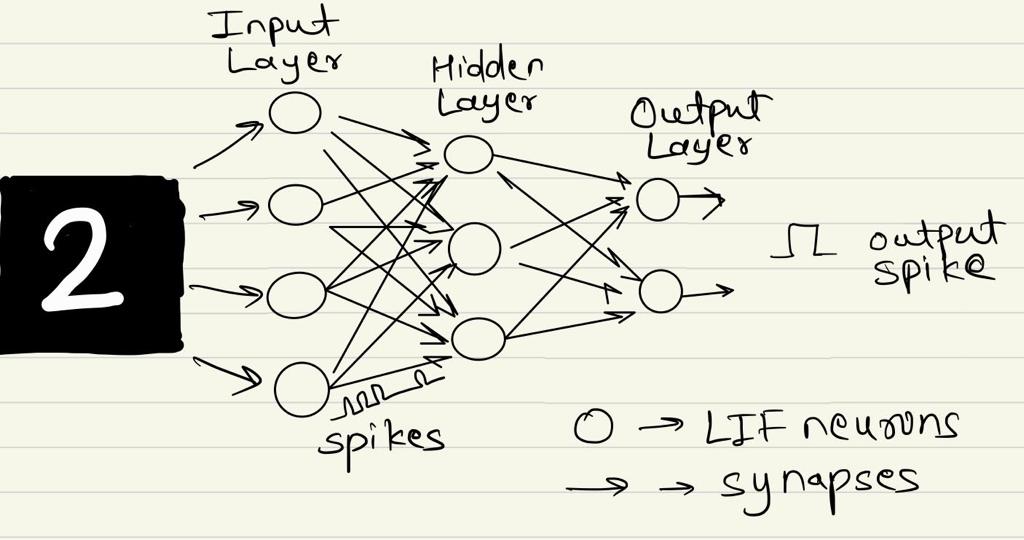 Input
Layer
Hidden
Layer
Output
Layer
2
output
spike
spikes
O → LIF neurons
→ → synapses